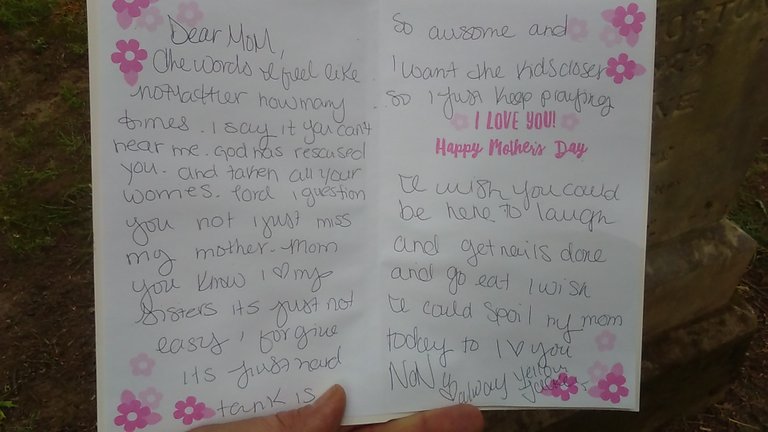 Dear Mom,
The words I feel like
no Mattter how many
times. I say it you can't
hear me. God has rescused
you. and taken all your
worries. lord i question
you not i just miss
my mother. Mom
you know i ♡ my
sisters its just not
easy i forgive
its just hard
tank is
So awsome and
I want the kids closer
so i just keep praying
I LOVE YOU!
Happy Mother's Day
I wish you could
be here to laugh
and get nails done
and go eat i wish
I could spoil my mom
today to I ♡ you
NoN
always yellow